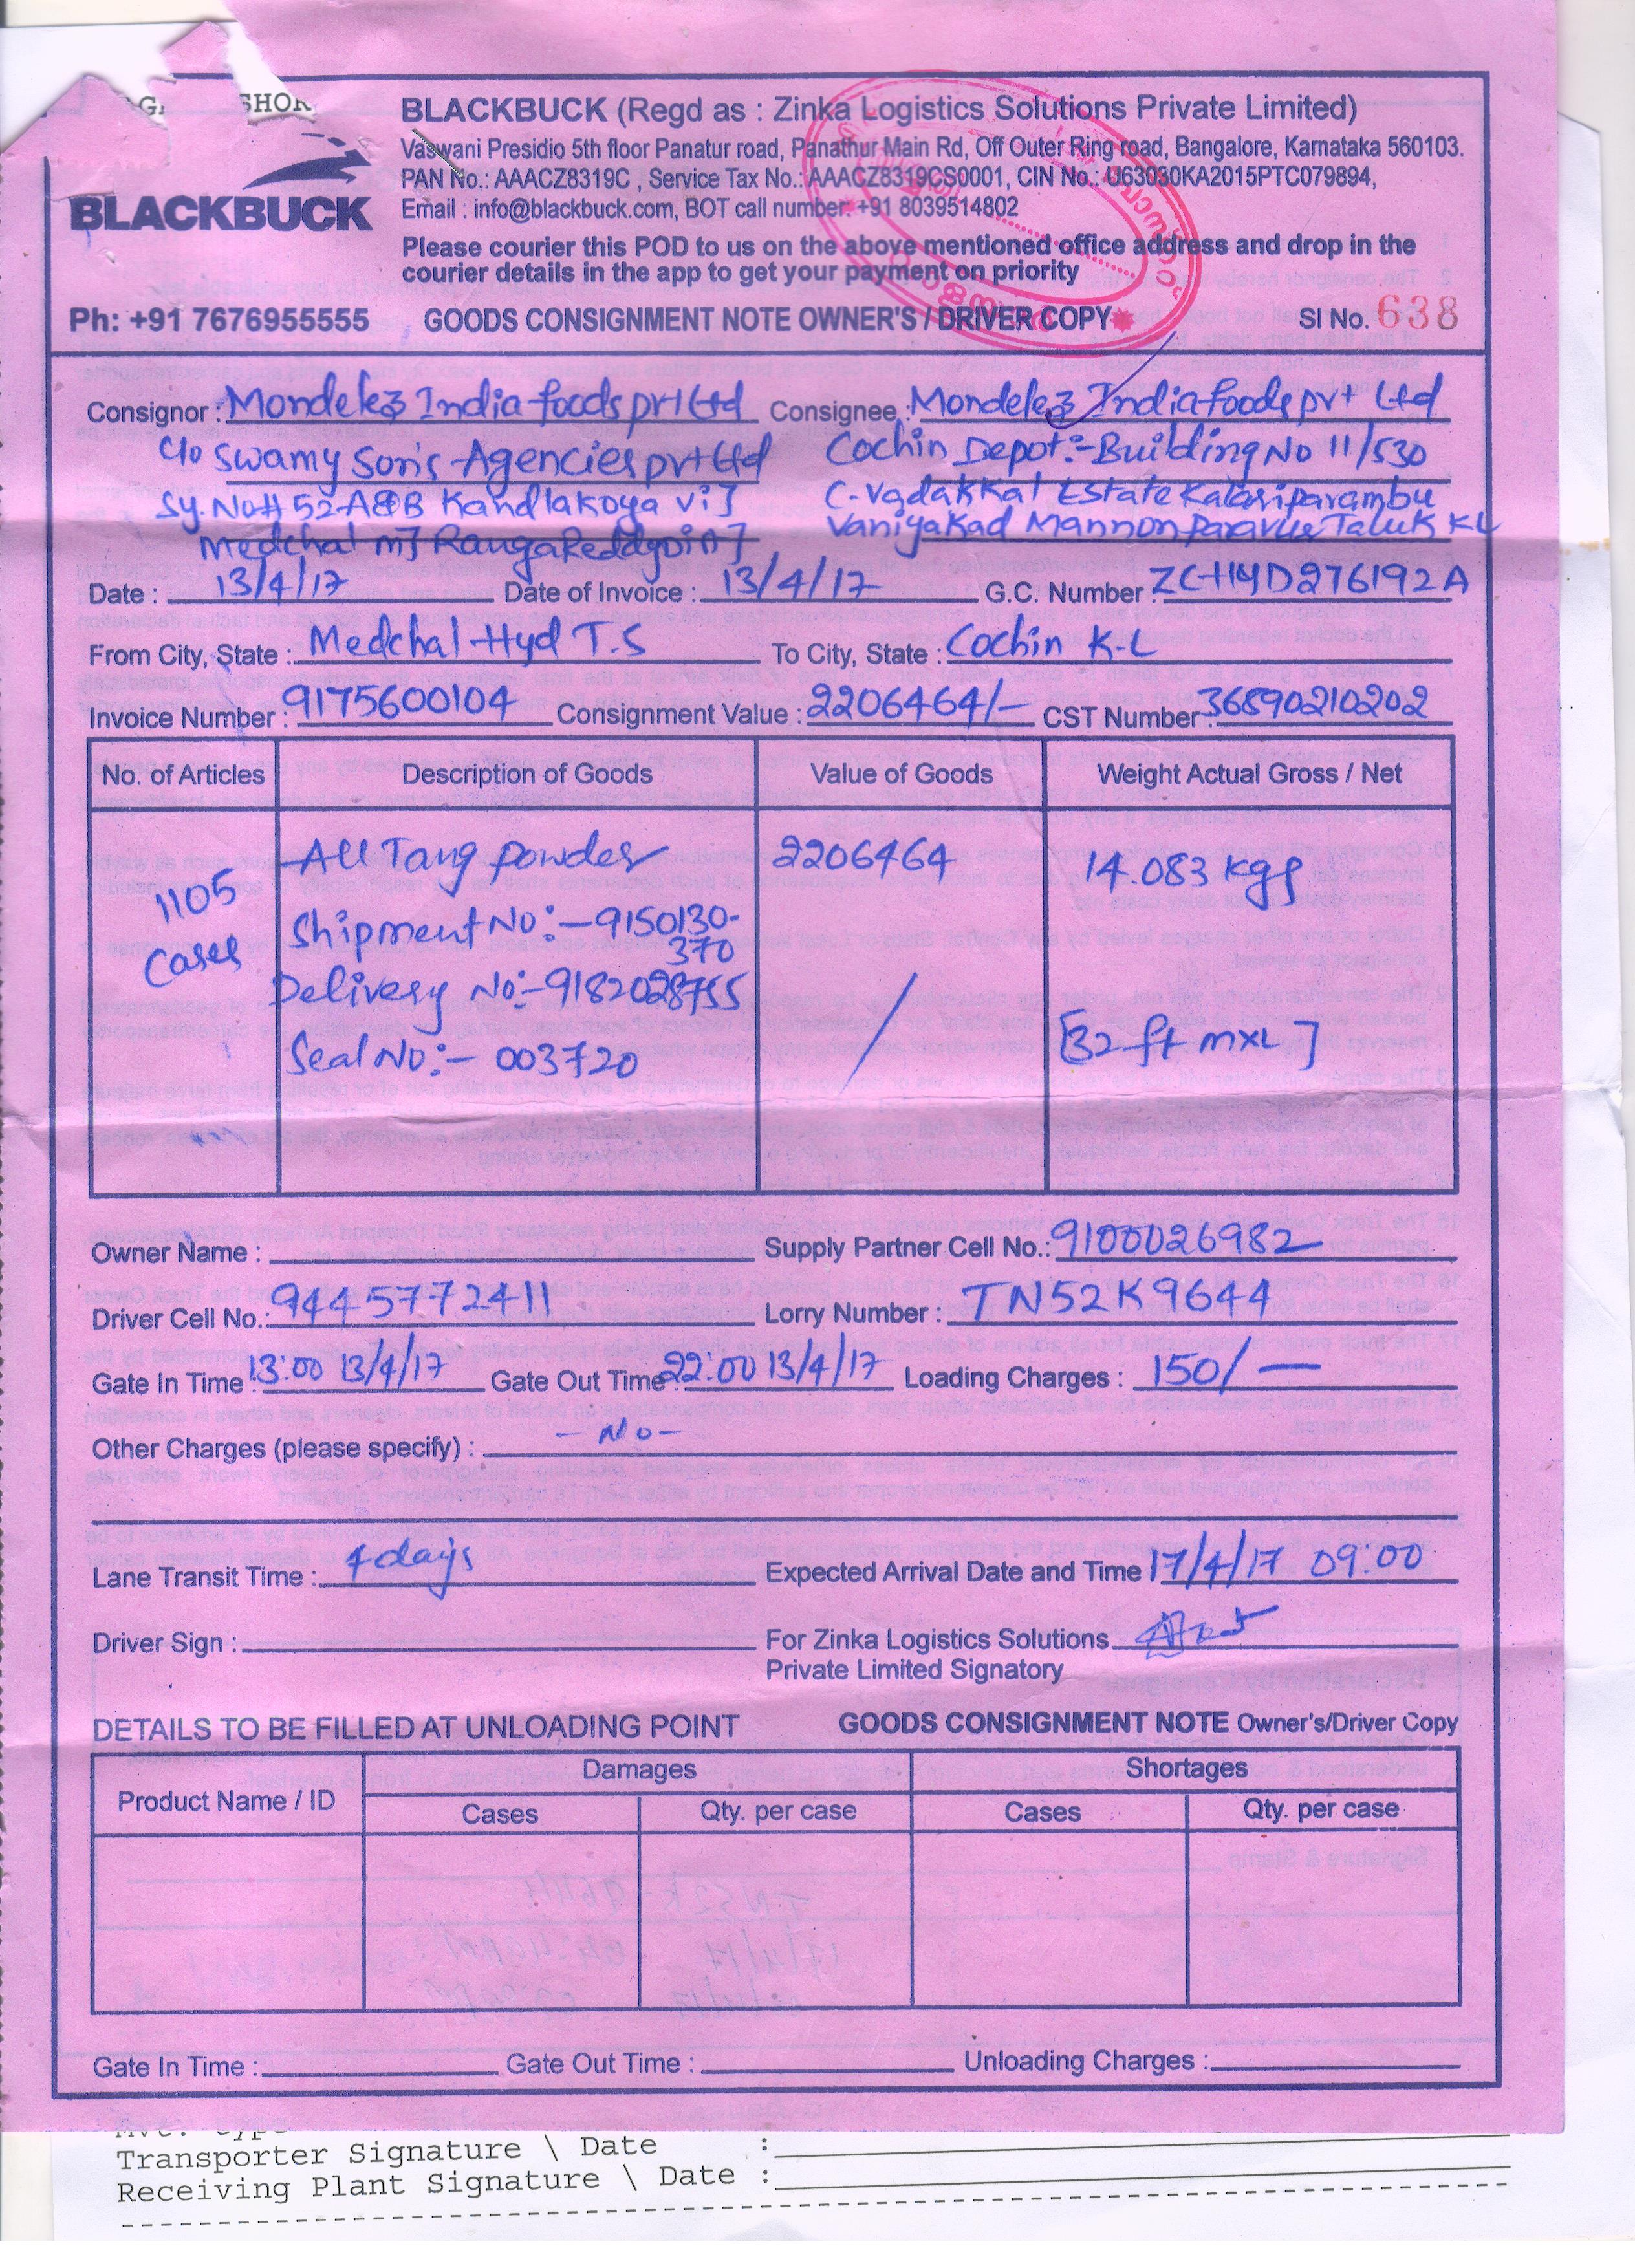 SHOR
BLACKBUCK
BLACKBUCK (Regd as : Zinka Logistics Solutions Private Limited)
Vaswani Presidio 5th floor Panatur road, Panathur Main Rd, Off Outer Ring road, Bangalore, Karnataka 560103.
PAN No.: AAACZ8319C , Service Tax No.: AAACZ8319CS0001, CIN No.: U63030KA2015PTC079894,
Email : info@blackbuck.com, BOT call number: +91 8039514802
Please courier this POD to us on the above mentioned office address and drop in the
courier details in the app to get your payment on priority
Ph: +91 7676955555 GOODS CONSIGNMENT NOTE OWNER'S / DRIVER COPY Sl No. 638
Consignor : Mondelez India foods pvt Ltd Consignee : Mondelez India foods pvt Ltd
C/o Swamy Son's Agencies pvt Ltd Cochin Depot:- Building No 11/530
Sy. No# 52-A&B Kandlakoya Vil C-Vadakkal Estate Kalariparambu
Medchal Ml RangaReddy Vaniyakad Mannon Paravur Taluk KL
Date : 13/4/17 Date of Invoice : 13/4/17 G.C. Number ZCHYD276192A
From City, State : Medchal Hyd T.S To City, State : Cochin K-L
Invoice Number : 9175600104 Consignment Value : 2206464/- CST Number 36890210202
No. of Articles Description of Goods Value of Goods Weight Actual Gross / Net
1105 Cases All Tang powder 2206464 14.083 kgs
Shipment No:- 9150130-
370
Delivery No:- 9182028755
Seal No:- 003720 [32 ft mxl]
Owner Name : Supply Partner Cell No.: 9100026982
Driver Cell No.: 9445772411 Lorry Number : TN52K9644
Gate In Time : 13:00 13/4/17 Gate Out Time : 22:00 13/4/17 Loading Charges : 150/—
Other Charges (please specify) : - No -
Lane Transit Time : 4 days Expected Arrival Date and Time 17/4/17 09:00
Driver Sign : For Zinka Logistics Solutions
Private Limited Signatory
DETAILS TO BE FILLED AT UNLOADING POINT GOODS CONSIGNMENT NOTE Owner's/Driver Copy
Product Name / ID Damages Shortages
Cases Qty. per case Cases Qty. per case
Gate In Time : Gate Out Time : Unloading Charges :
Transporter Signature \ Date :
Receiving Plant Signature \ Date :